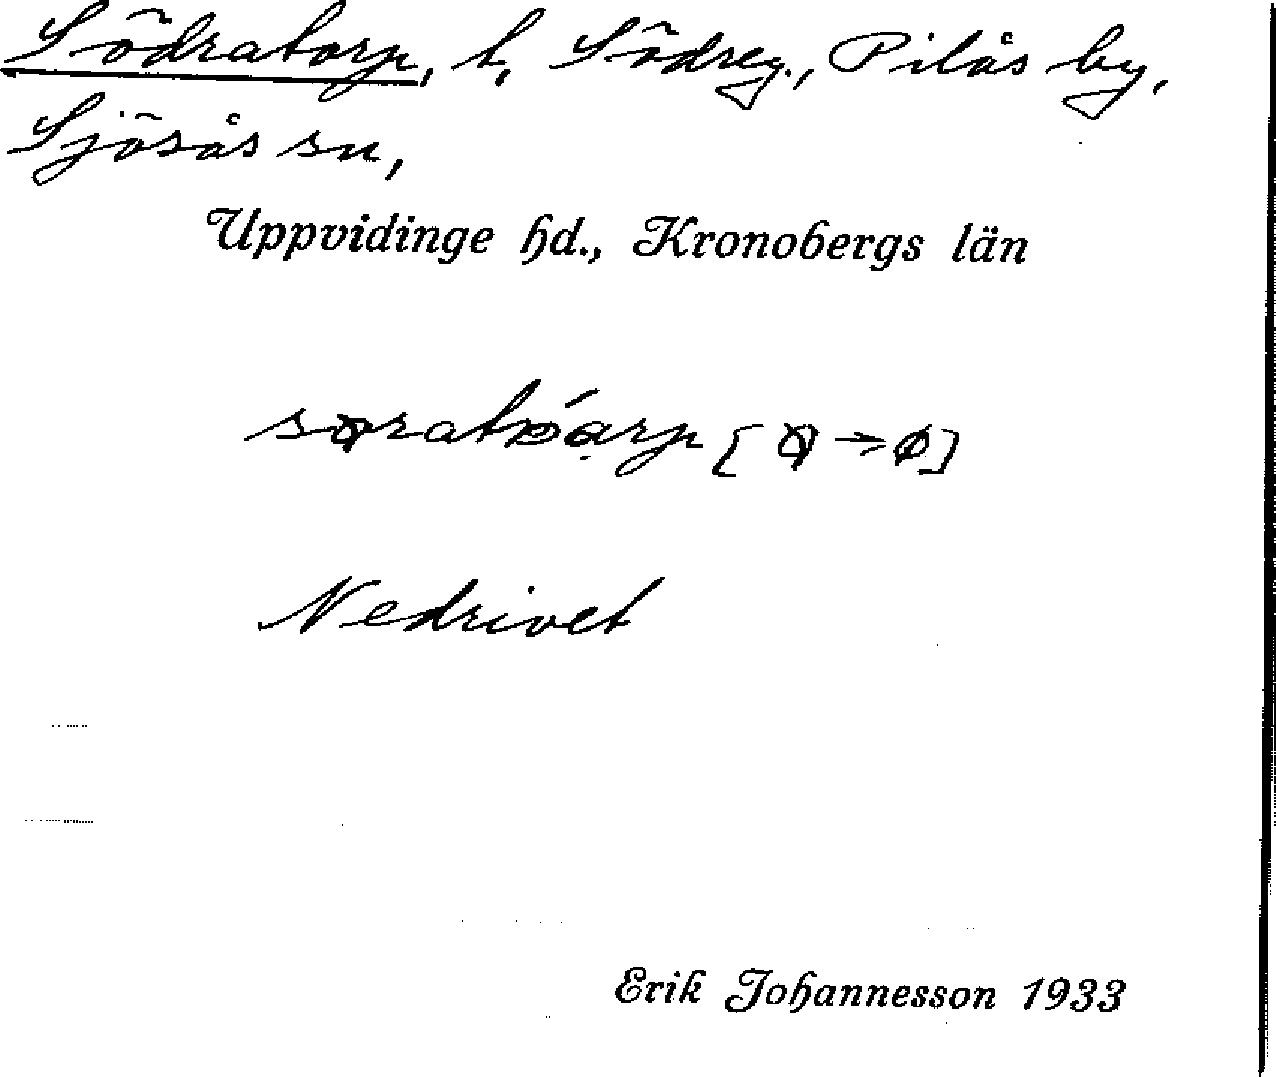 Södratorp, t, Södreg., Pilås by,
Sjösås sn,
Uppvidinge hd., Kronobergs län
Nedrivet
Erik Johannesson 1933